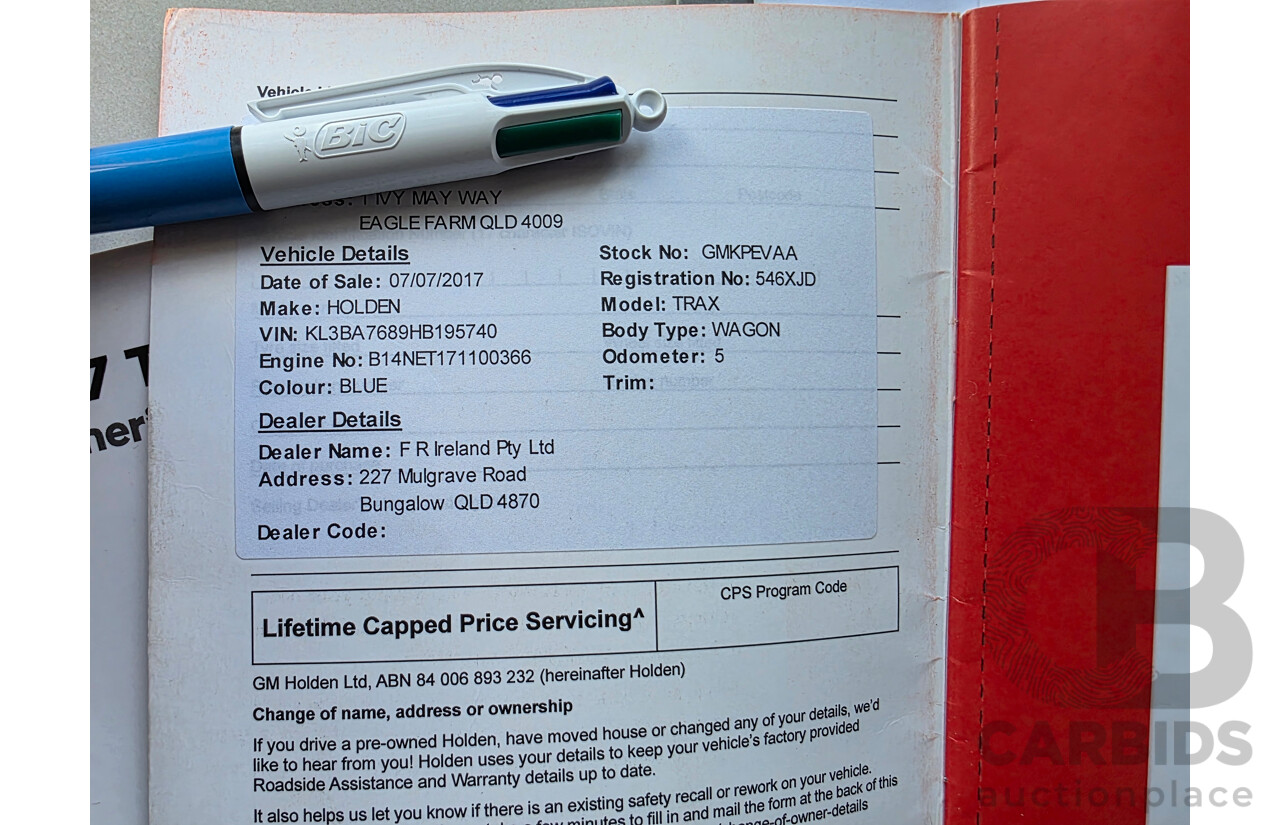 Vehicle
BiC
1 IVY MAY WAY
EAGLE FARM QLD 4009
Vehicle Details
Stock No: GMKPEVAA
Date of Sale: 07/07/2017
Registration No: 546XJD
Make: HOLDEN
Model: TRAX
VIN: KL3BA7689HB195740
Body Type: WAGON
Engine No: B14NET171100366
Odometer: 5
Colour: BLUE
Trim:
Dealer Details
Dealer Name: F R Ireland Pty Ltd
Address: 227 Mulgrave Road
Bungalow QLD 4870
Dealer Code:
Lifetime Capped Price Servicing^
CPS Program Code
GM Holden Ltd, ABN 84 006 893 232 (hereinafter Holden)
Change of name, address or ownership
If you drive a pre-owned Holden, have moved house or changed any of your details, we'd
like to hear from you! Holden uses your details to keep your vehicle's factory provided
Roadside Assistance and Warranty details up to date.
It also helps us let you know if there is an existing safety recall or rework on your vehicle.
few minutes to fill in and mail the form at the back of this
CARBIDS
auctionplace